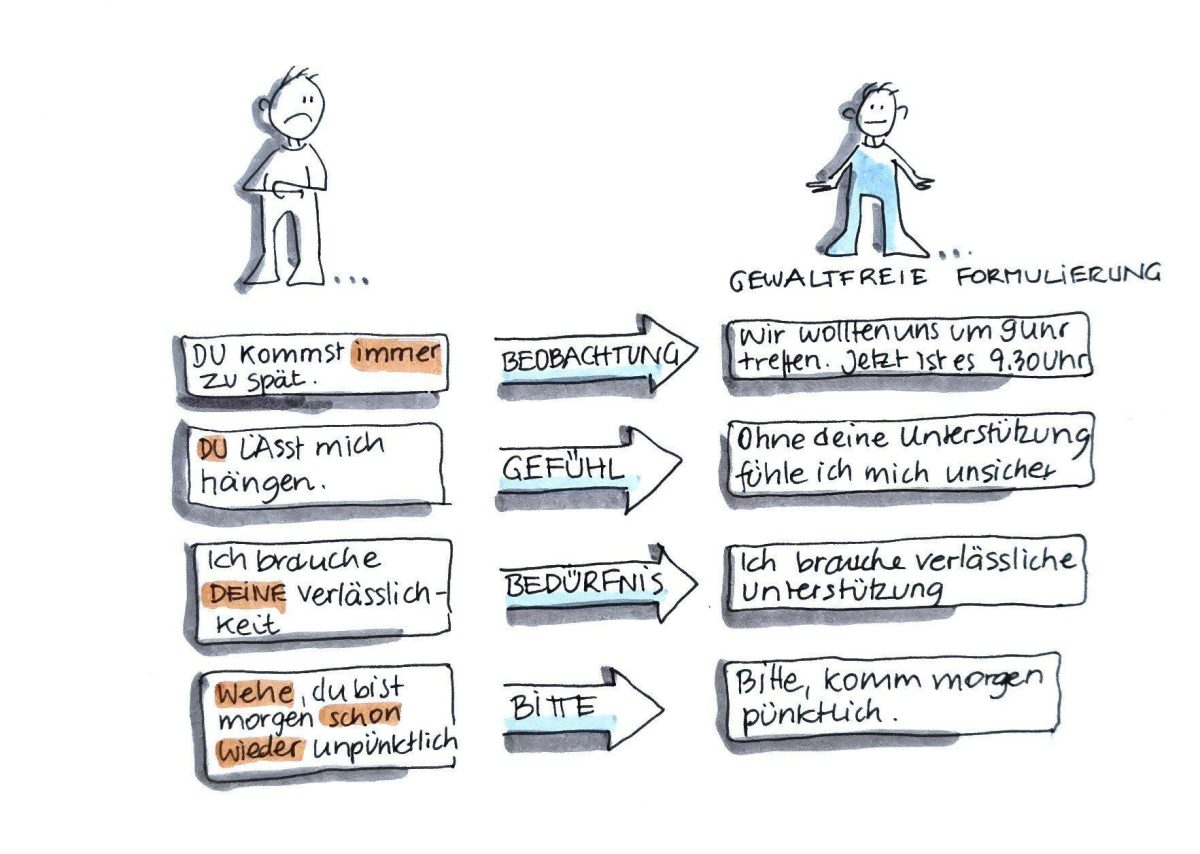 GEWALTFREIE FORMULIERUNG
DU kommst immer
zu spät.
BEOBACHTUNG
Wir wollten uns um 9 Uhr
treffen. Jetzt ist es 9.30 Uhr
DU LÄsst mich
hängen.
GEFÜHL
Ohne deine Unterstützung
fühle ich mich unsicher
Ich brauche
DEINE verlässlich-
keit
BEDÜRFNIS
Ich brauche verlässliche
unterstützung
Wehe, du bist
morgen schon
wieder unpünktlich
BITTE
Bitte, komm morgen
pünktlich.